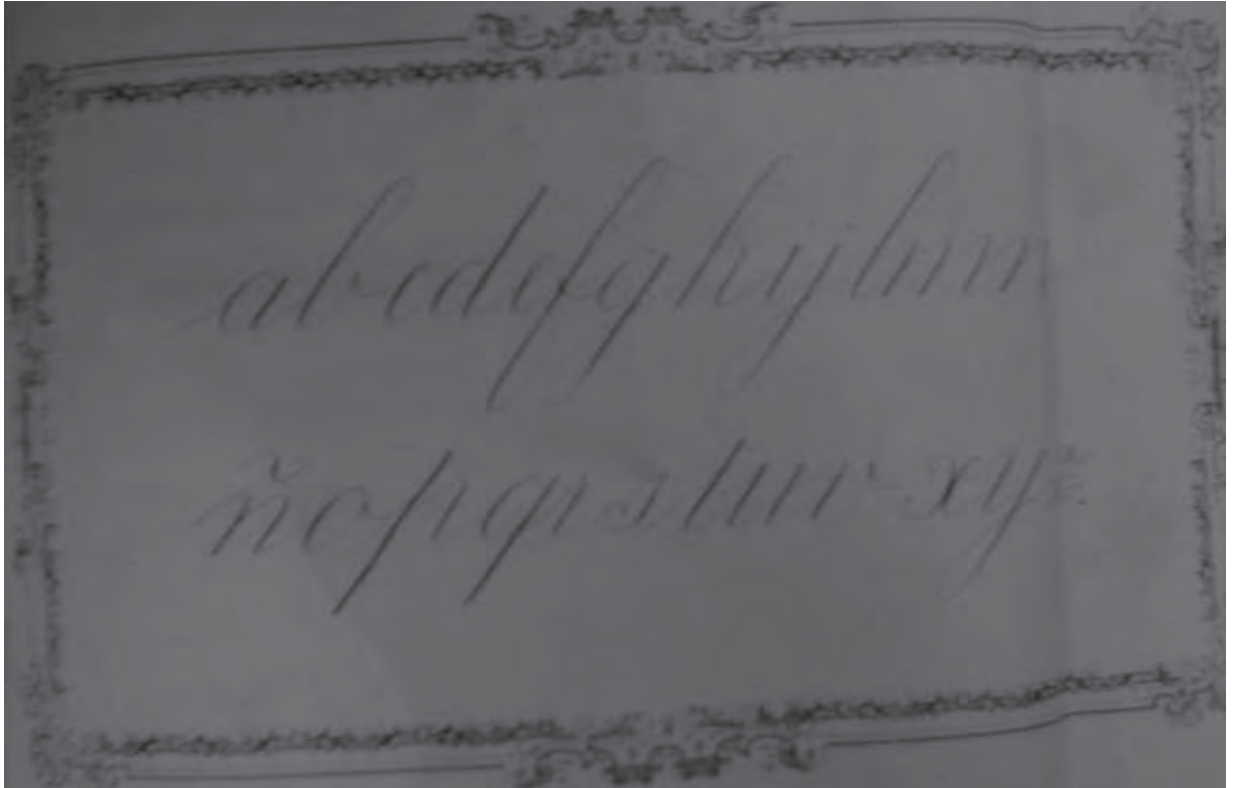 abcdefghijlmn
ñopqrstuvxyz.